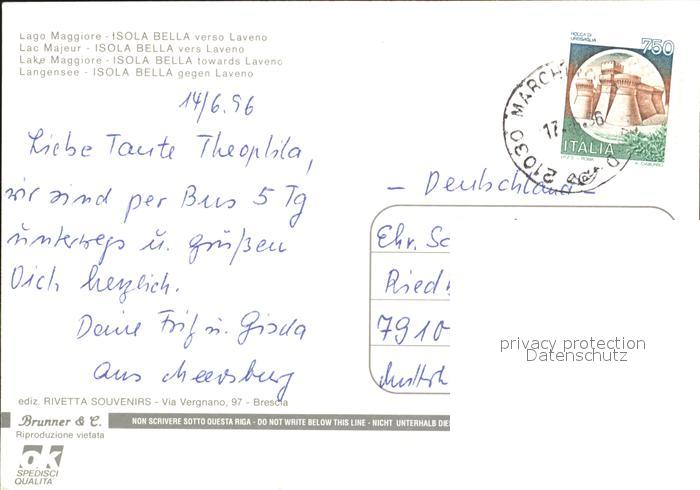 Lago Maggiore - ISOLA BELLA verso Laveno
Lac Majeur - ISOLA BELLA vers Laveno
Lake Maggiore - ISOLA BELLA towards Laveno
Langensee - ISOLA BELLA gegen Laveno
ROCCA DI URBISAGLIA
750
ITALIA
21030 MARCH
17
14/6.96
Liebe Tante Theophila,
wir sind per Bus 5 Tg
unterwegs u. grüßen
Dich herzlich.
Deine Fritz u. Gisela
aus Meersburg
- Deutschland -
Ehr. Sc
Ried
7910
privacy protection
Datenschutz
ediz. RIVETTA SOUVENIRS - Via Vergnano, 97 - Brescia
Brunner & C.
NON SCRIVERE SOTTO QUESTA RIGA - DO NOT WRITE BELOW THIS LINE - NICHT UNTERHALB DIE
Riproduzione vietata
ok
SPEDISCI
QUALITÀ